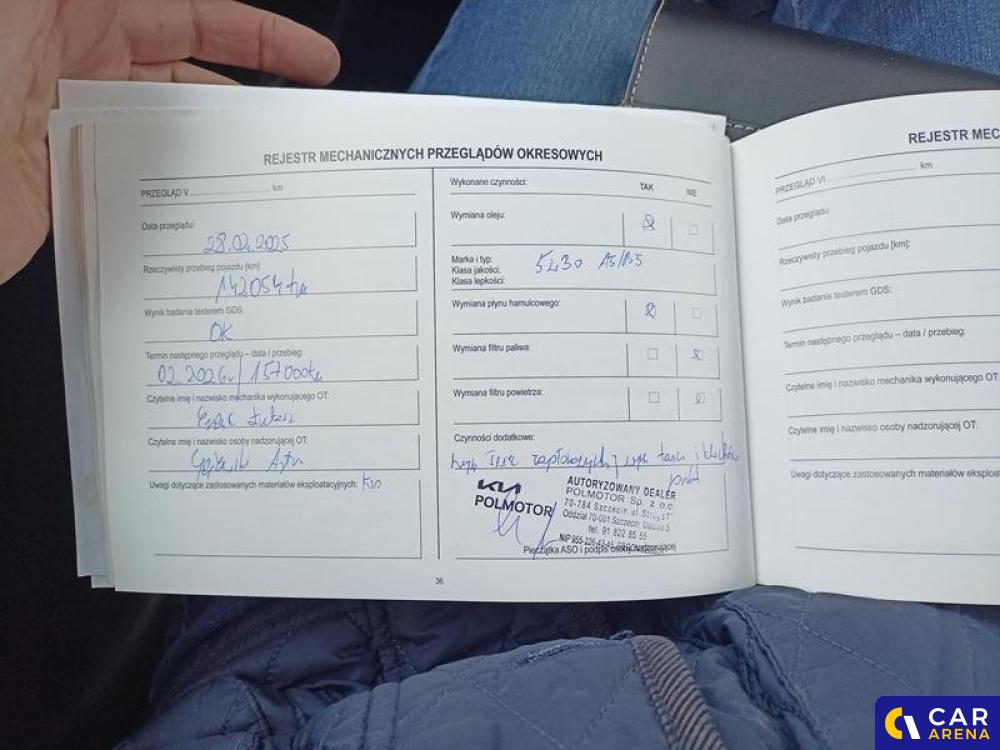 REJESTR MECHANICZNYCH PRZEGLĄDÓW OKRESOWYCH
PRZEGLĄD V.................................. km
Data przeglądu:
28.02.2025
Rzeczywisty przebieg pojazdu [km]:
142054 km
Wynik badania testerem GDS:
OK
Termin następnego przeglądu – data / przebieg:
02.2026r / 157000km
Czytelne imię i nazwisko mechanika wykonującego OT:
Czytelne imię i nazwisko osoby nadzorującej OT:
Uwagi dotyczące zastosowanych materiałów eksploatacyjnych: Kia
Wykonane czynności: TAK NIE
Wymiana oleju:
Marka i typ: 5W30 A5/B5
Klasa jakości:
Klasa lepkości:
Wymiana płynu hamulcowego:
Wymiana filtru paliwa:
Wymiana filtru powietrza:
Czynności dodatkowe:
zapłonowych, tarcz i klocków
przód
KIA
POLMOTOR
AUTORYZOWANY DEALER
POLMOTOR Sp. z o.o.
70-784 Szczecin ul.
Oddział 70-001 Szczecin
tel. 91 822 85 55
Pieczątka ASO i podpis osoby nadzorującej
36
REJESTR MEC
PRZEGLĄD VI.................................. km
Data przeglądu:
Rzeczywisty przebieg pojazdu [km]:
Wynik badania testerem GDS:
Termin następnego przeglądu – data / przebieg:
Czytelne imię i nazwisko mechanika wykonującego OT:
Czytelne imię i nazwisko osoby nadzorującej OT:
Uwagi dotyczące zastosowanych materiałów eksploatac
CAR
ARENA